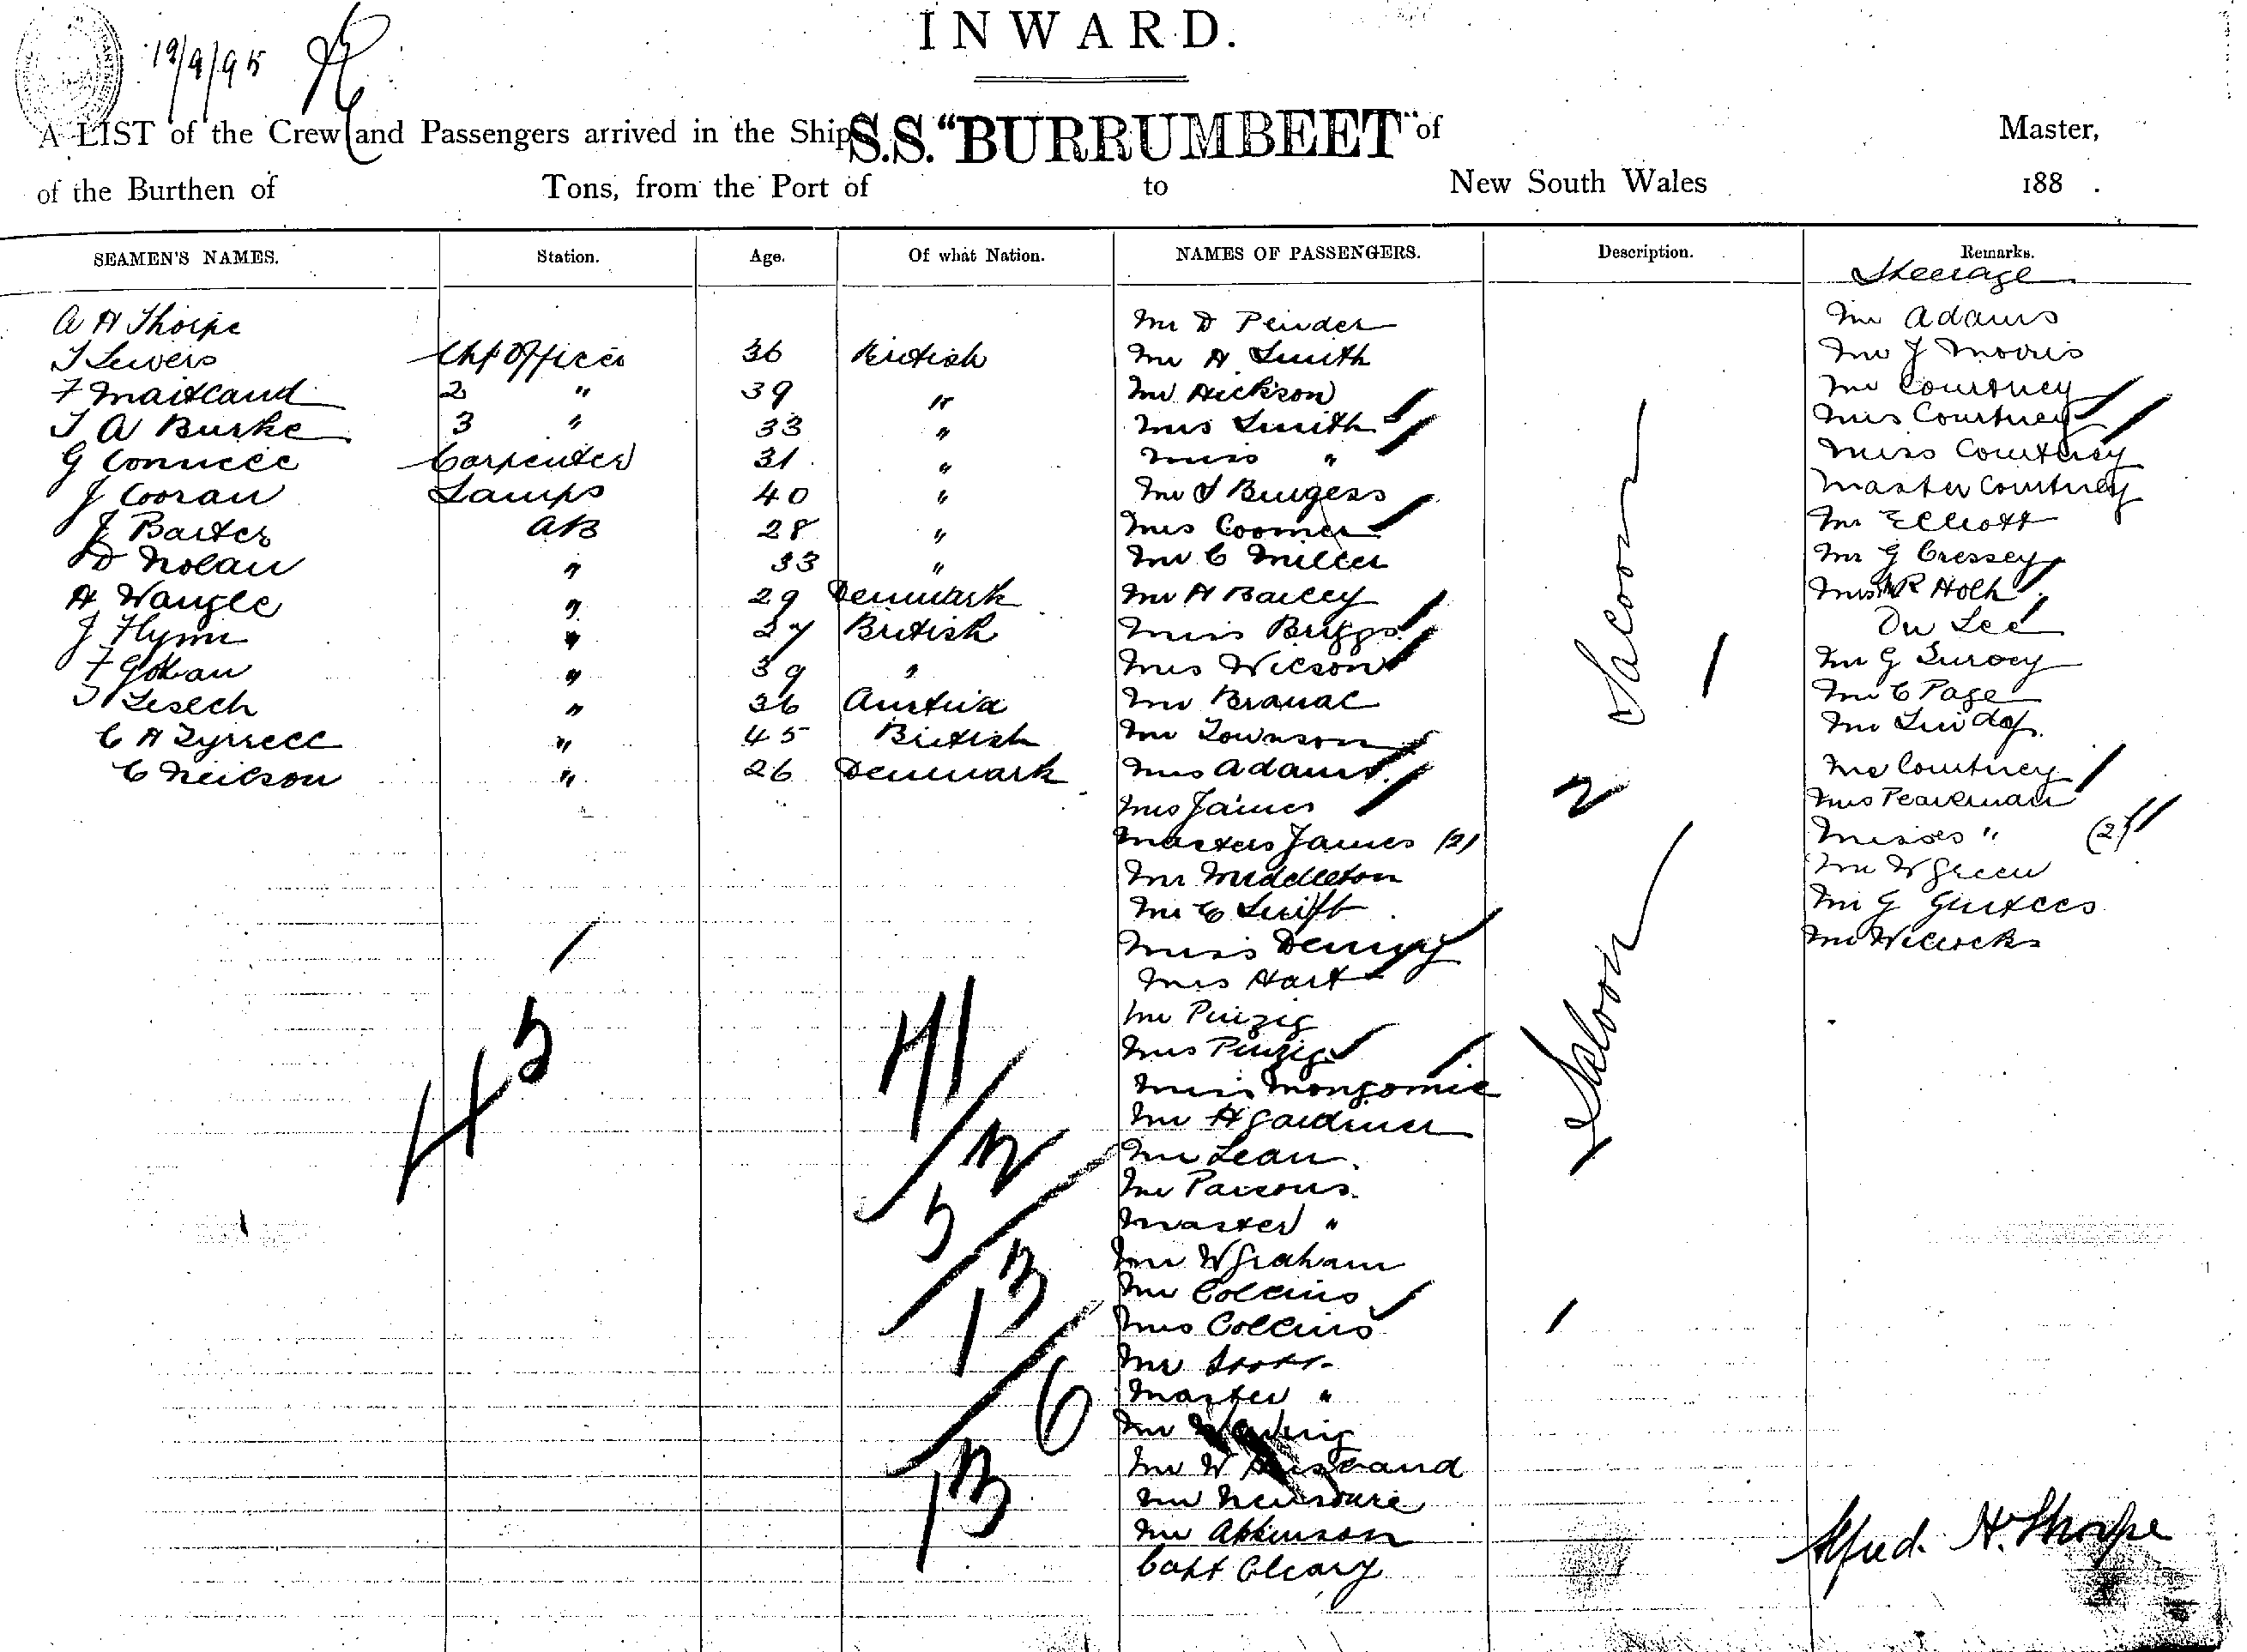 INWARD.
19/9/95
A LIST of the Crew and Passengers arrived in the Ship S.S. "BURRUMBEET" of Master,
of the Burthen of Tons, from the Port of to New South Wales 188 .
SEAMEN'S NAMES. Station. Age. Of what Nation. NAMES OF PASSENGERS. Description. Remarks.
Steerage
A H Thorpe
Chf Officer 36 British
F Maitland 2 " 39 "
T A Burke 3 " 33 "
G Connell Carpenter 31 "
J Cooran Lamps 40 "
J Baxter AB 28 "
D Nolan " 33 "
H Wangle " 29 Denmark
J Flynn " 27 British
F " 39 "
" 36 Austria
C H Tyrrell " 45 British
C Neilson " 26 Denmark
Mr D Pender
Mr H Smith
Mr Hickson
Mrs Smith
Miss "
Mr S Burgess
Mrs Coomer
Mr C Miller
Mr H Bailey
Miss Briggs
Mrs Wilson
Mr
Mr Townson
Mrs Adams
Mrs James
Masters James (2)
Mr Middleton
Mr C Swift
Miss Denny
Mrs Hart
Mr Pinzig
Mrs Pinzig
Miss Mongomie
Mr H Gardiner
Mr Lean
Mr Parsons
Master "
Mr W Graham
Mr Collins
Mrs Collins
Mr Scott
Master "
Mr
Mr W
Mr
Mr Atkinson
Capt Cleary
2 Saloon
Saloon
Mr Adams
Mr J Morris
Mr Courtney
Mrs Courtney
Miss Courtney
Master Courtney
Mr Elliott
Mr G Cressey
R Holh
On Lee
Mr G
Mr C Page
Mr
Mrs Courtney
Mrs Pearlman
Misses " (2)
Mr W Green
Mr G
Mr Wilcocks
45
41
12
5
13
6
13
Alfred H. Thorpe